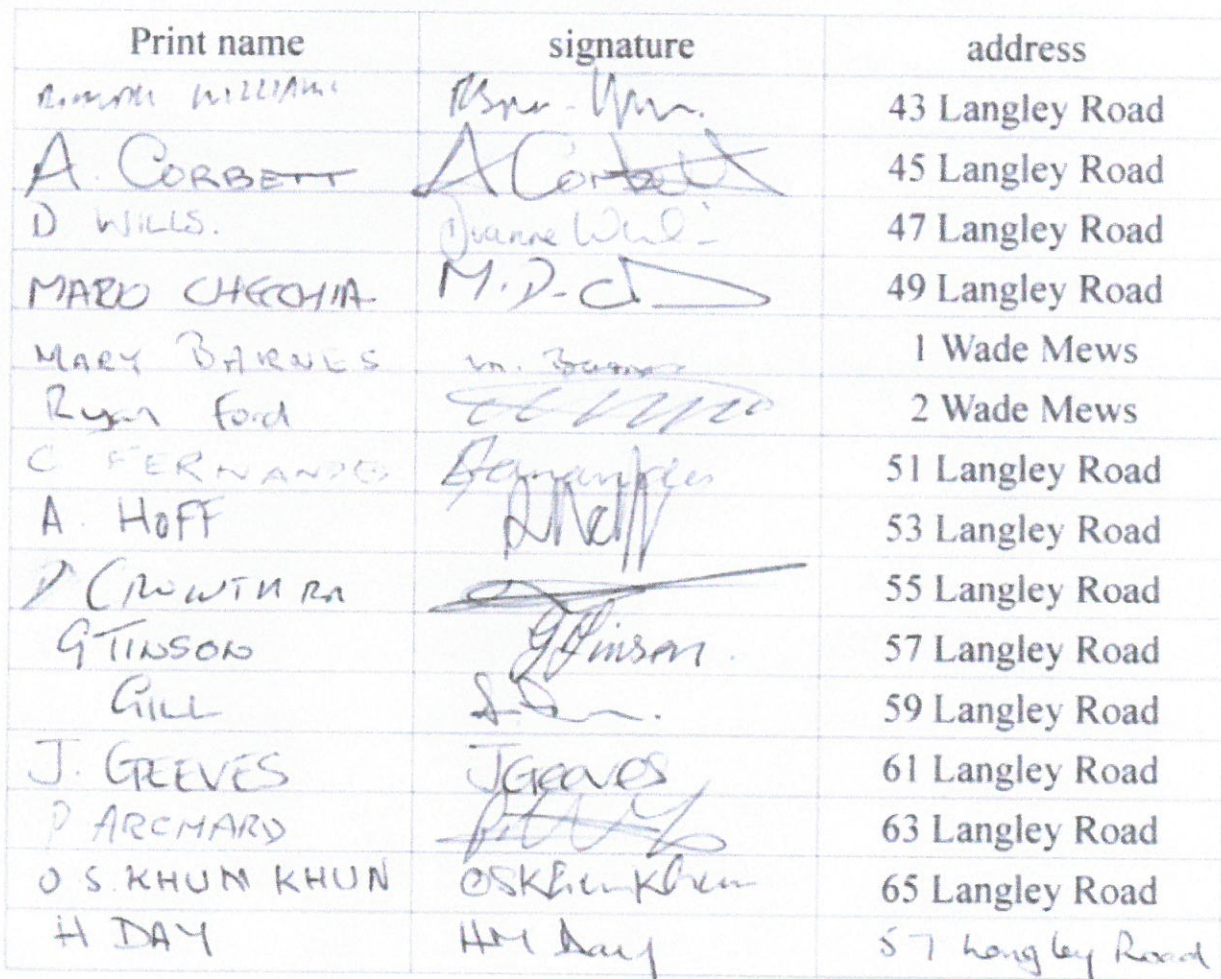 Print name signature address
WILLIAMS 43 Langley Road
A. CORBETT A Corbett 45 Langley Road
D WILLS. 47 Langley Road
MARIO M.D. 49 Langley Road
MARY BARNES m. Barnes 1 Wade Mews
Ryan Ford 2 Wade Mews
C FERNANDES Fernandes 51 Langley Road
A. HOFF AHoff 53 Langley Road
D 55 Langley Road
G TINSON G Tinson. 57 Langley Road
GILL 59 Langley Road
J. GREEVES JGreeves 61 Langley Road
P ARCHARD 63 Langley Road
O S. KHUN KHUN OSKhunKhun 65 Langley Road
H DAY HM Day 57 Langley Road